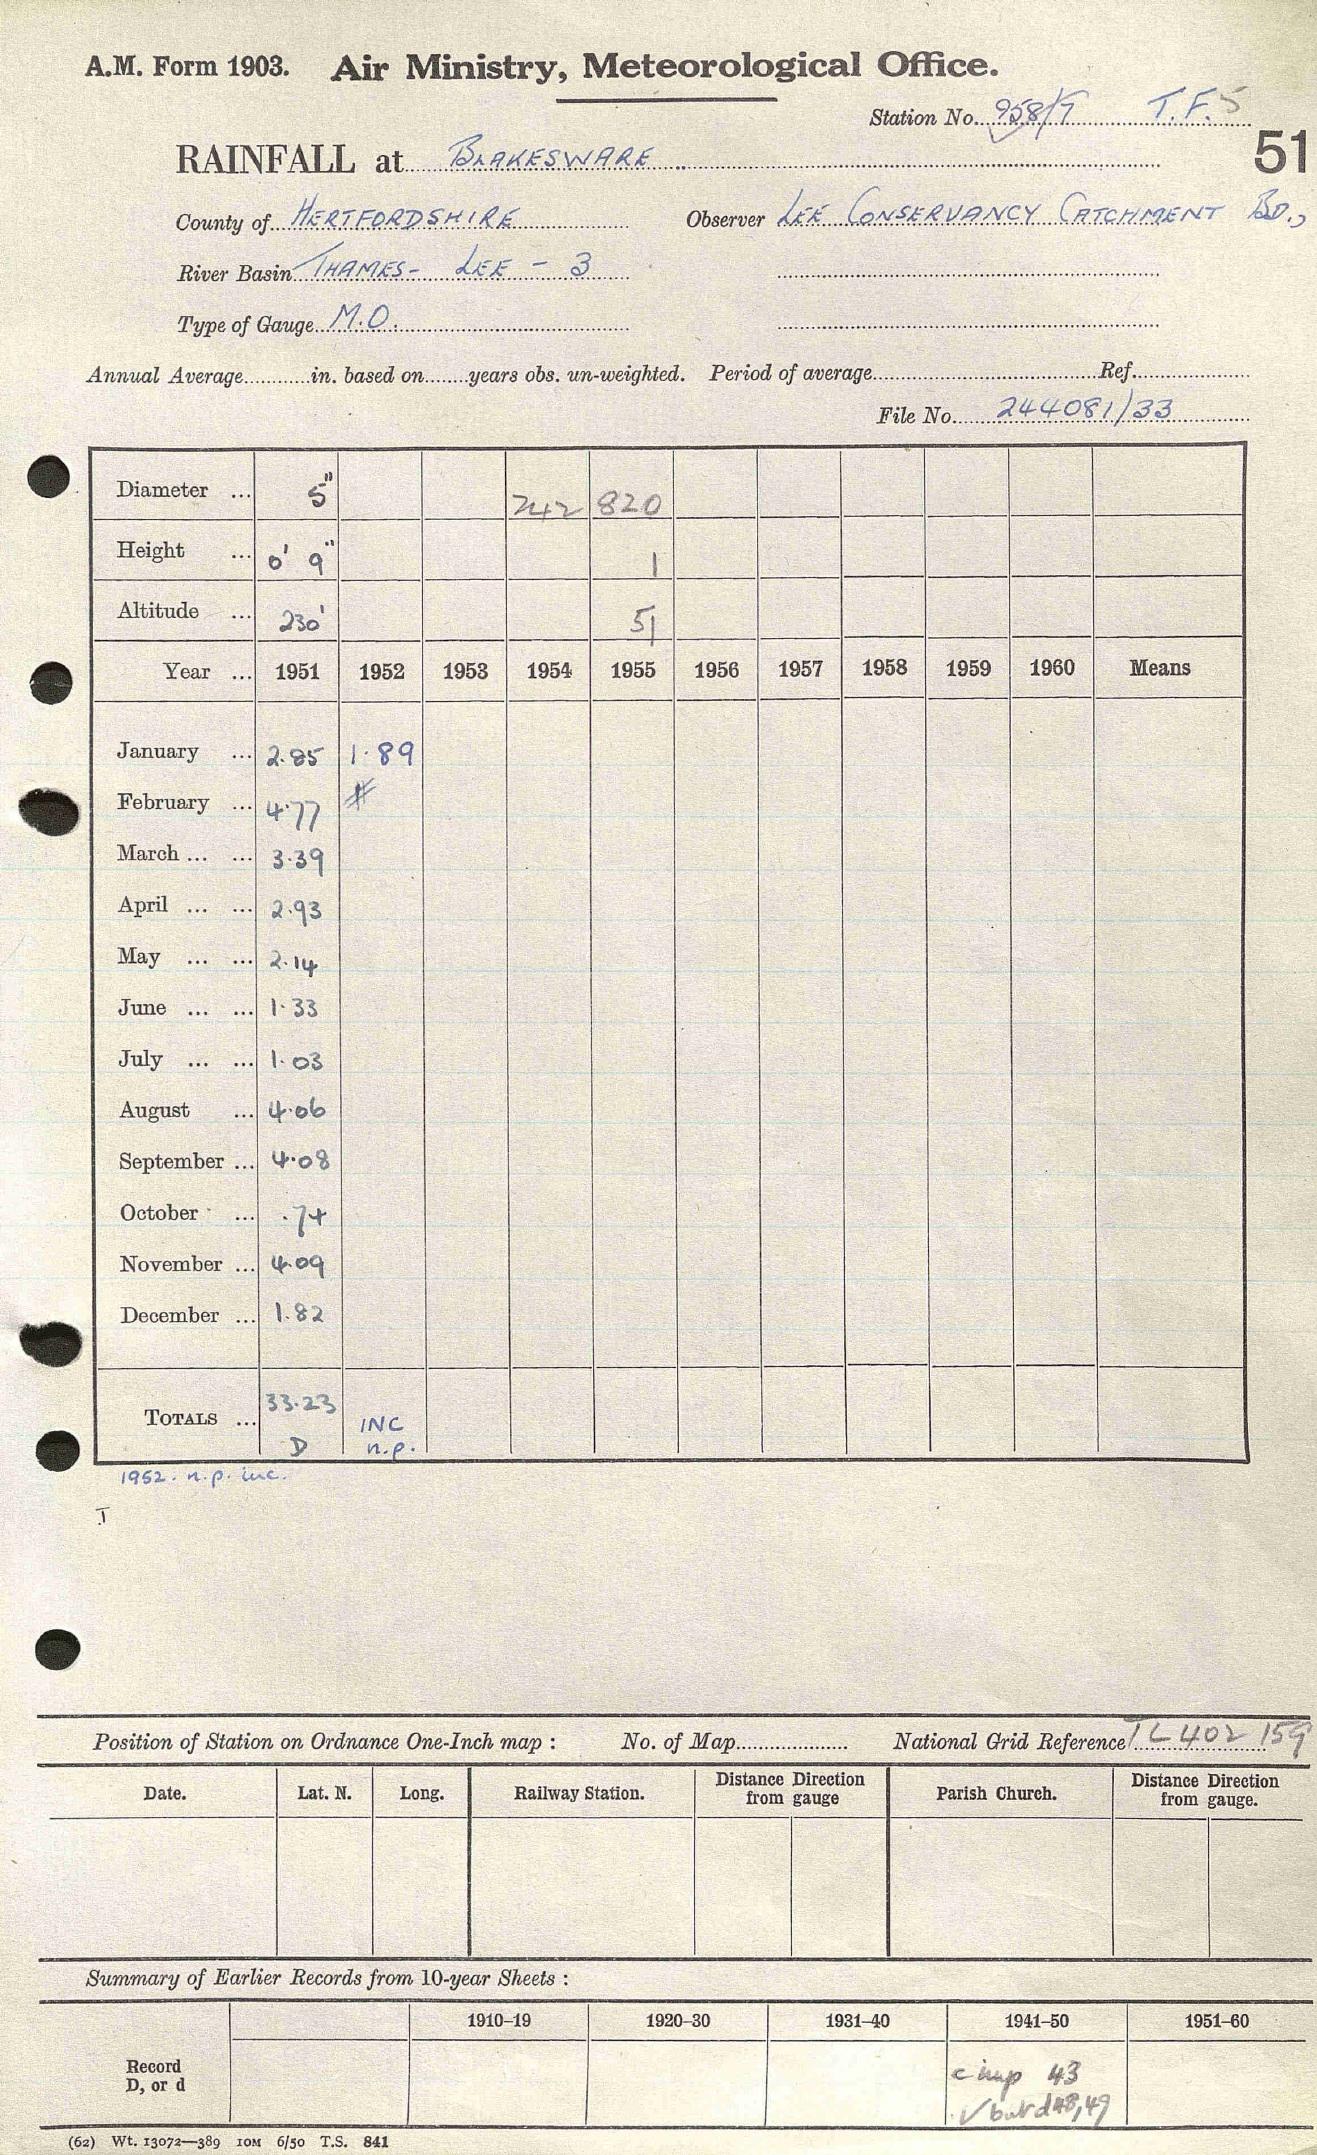 A.M. Form 1903. Air Ministry, Meteorological Office.
Station No. 958/7 T.F.5
51
RAINFALL at BLAKESWARE
County of HERTFORDSHIRE Observer LEE CONSERVANCY CATCHMENT BD.,
River Basin THAMES - LEE - 3
Type of Gauge M.O.
Annual Average............in. based on........years obs. un-weighted. Period of average............Ref............
File No. 244081/33
Diameter ... 5" 242 820
Height ... 0' 9" 1
Altitude ... 230' 51
Year ... 1951 1952 1953 1954 1955 1956 1957 1958 1959 1960 Means
January ... 2.85 1.89
February ... 4.77 #
March ... ... 3.39
April ... ... 2.93
May ... ... 2.14
June ... ... 1.33
July ... ... 1.03
August ... 4.06
September ... 4.08
October ... .74
November ... 4.09
December ... 1.82
TOTALS ... 33.23 INC
D n.p.
1952. n.p. inc.
I
Position of Station on Ordnance One-Inch map : No. of Map............ National Grid Reference TL 402 159
Date. Lat. N. Long. Railway Station. Distance from gauge Direction Parish Church. Distance from gauge. Direction
Summary of Earlier Records from 10-year Sheets :
1910–19 1920–30 1931–40 1941–50 1951–60
Record
D, or d
c imp 43
✓ but d 48, 49
(62) Wt. 13072—389 10M 6/50 T.S. 841